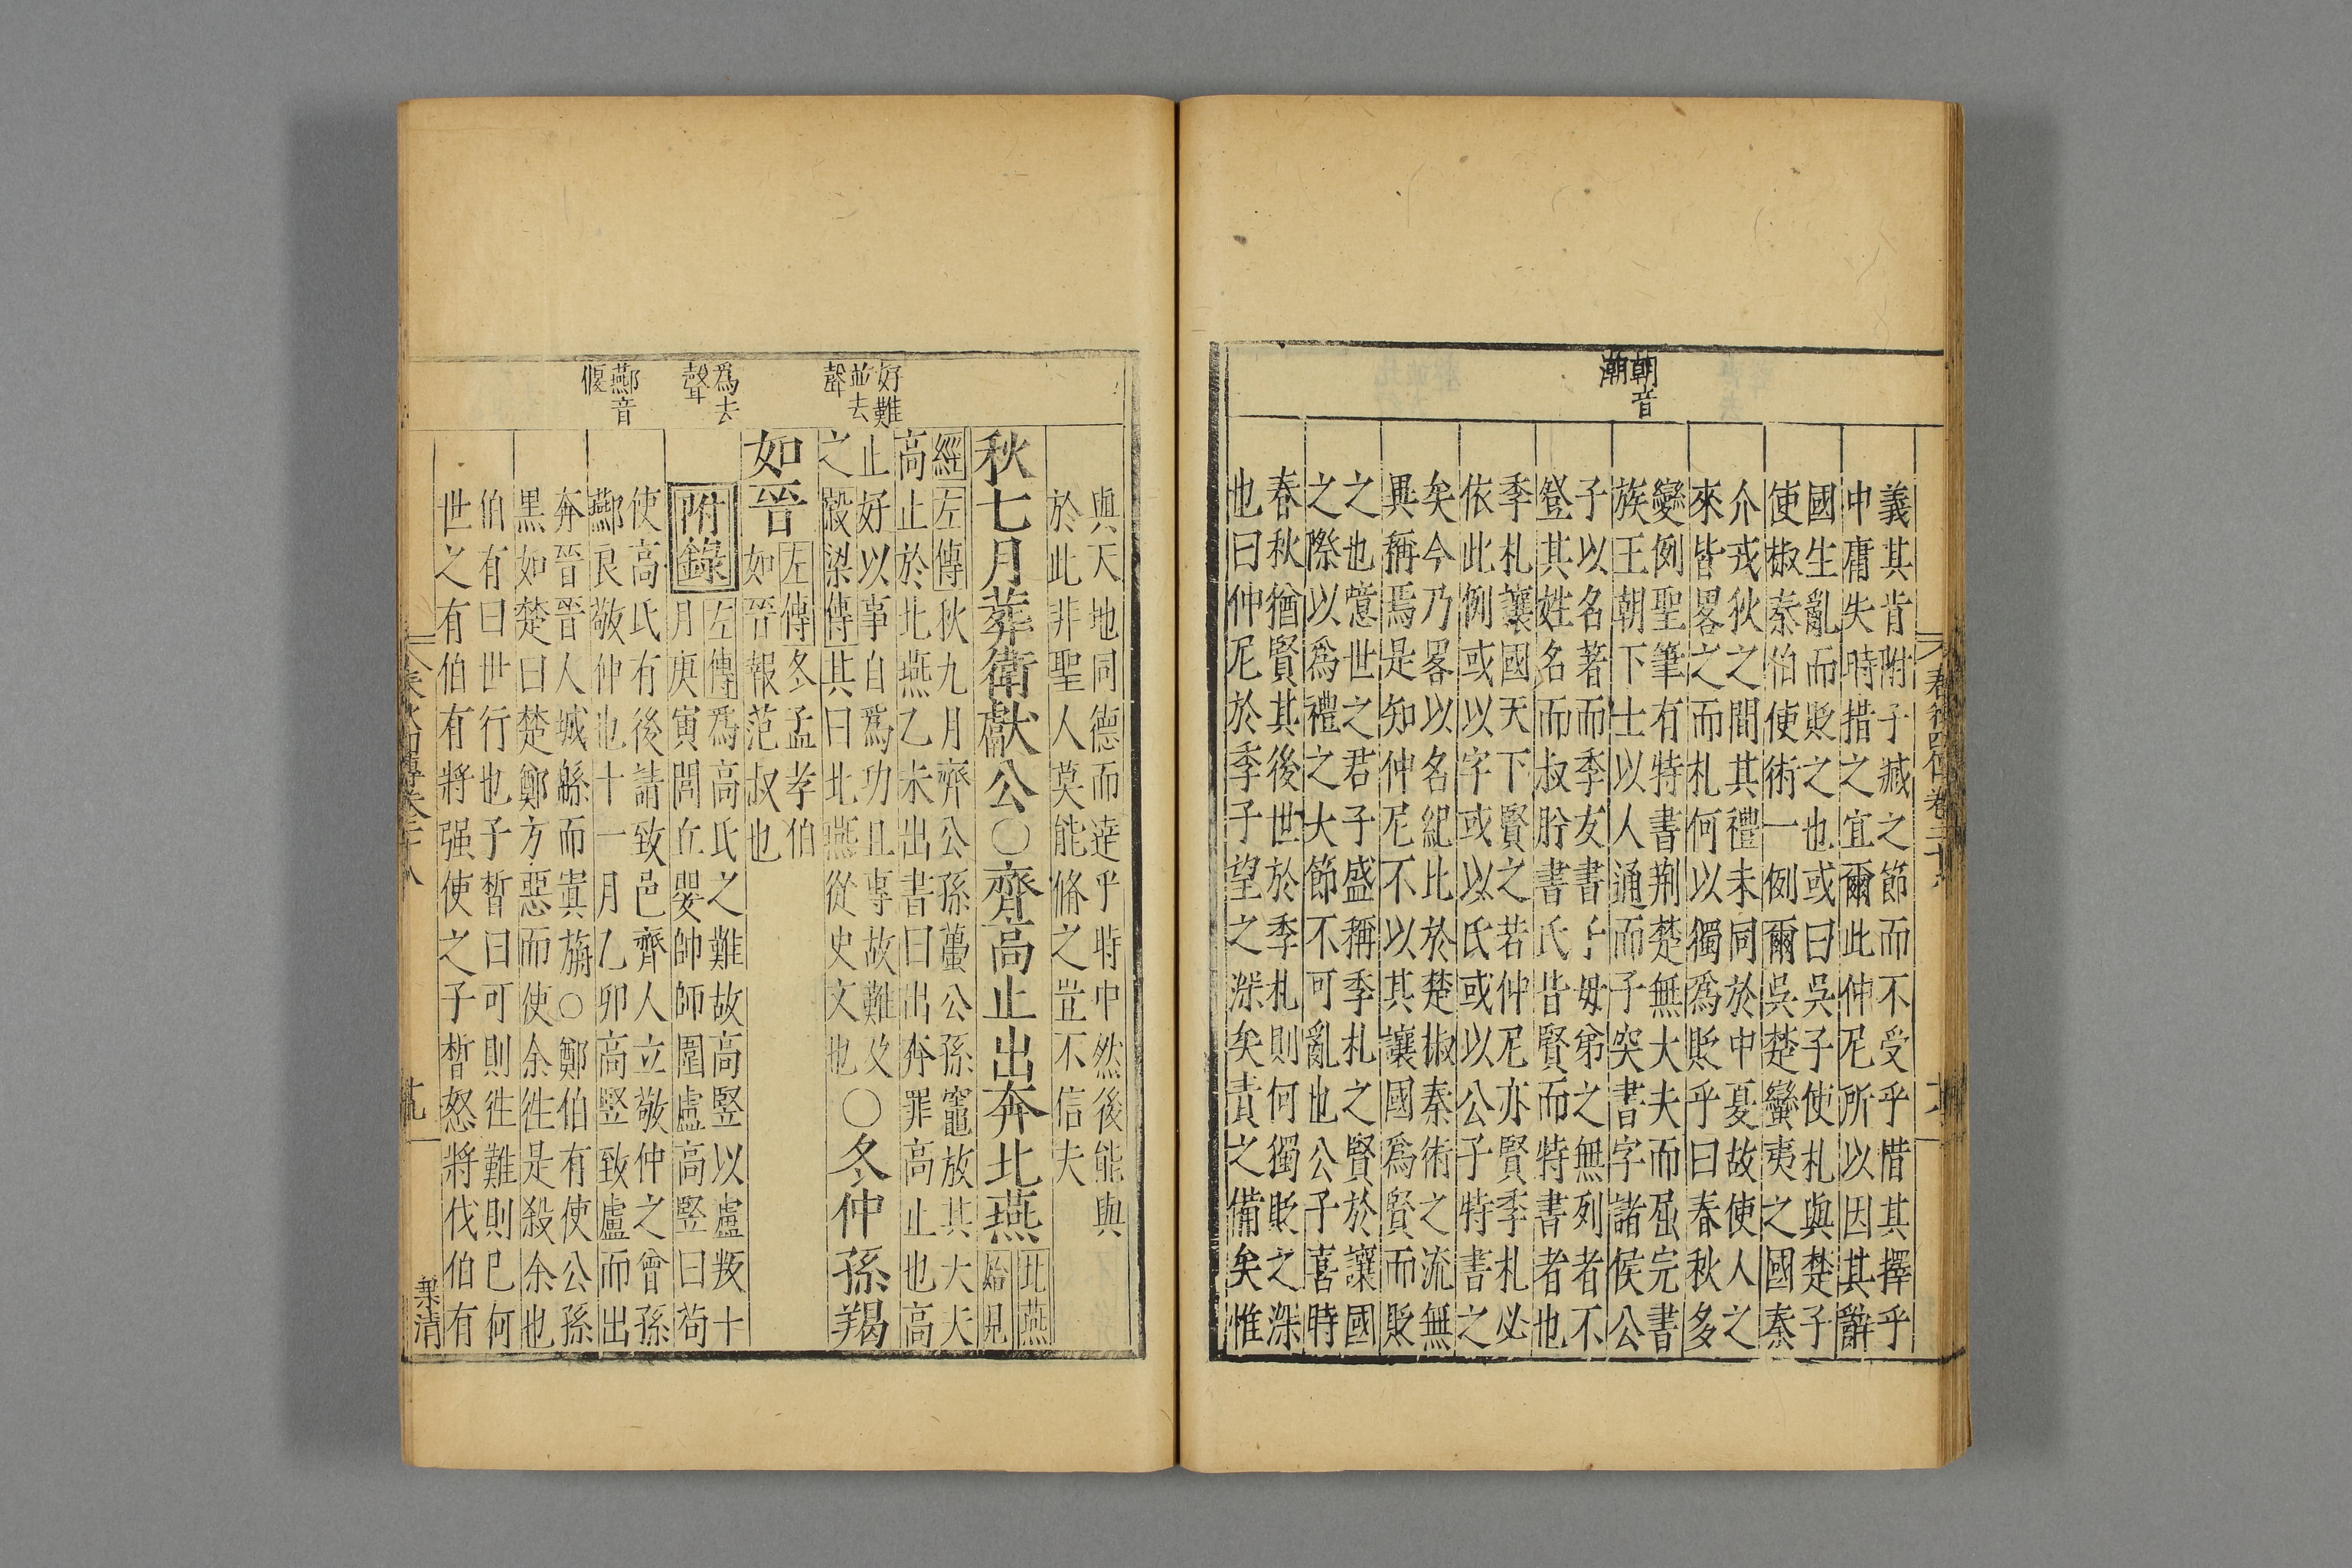 朝音
潮
義其肯附子臧之節而不受乎惜其擇乎
中庸失時措之宜爾此仲尼所以因其辭
國生亂而貶之也或曰吳子使札與楚子
使椒秦伯使術一例爾吳楚蠻夷之國秦
介戎狄之間其禮未同於中夏故使人之
來皆畧之而札何以獨爲貶乎曰春秋多
變例聖筆有特書荆楚無大夫而屈完書
族王朝下士以人通而子突書字諸侯公
子以名著而季友書子毋弟之無列者不
登其姓名而叔肸書氏皆賢而特書者也
季札讓國天下賢之若仲尼亦賢季札必
依此例或以字或以氏或以公子特書之
矣今乃畧以名紀比於楚椒秦術之流無
異稱焉是知仲尼不以其讓國爲賢而貶
之也噫世之君子盛稱季札之賢於讓國
之際以爲禮之大節不可亂也公子喜時
春秋猶賢其後世於季札則何獨貶之深
也曰仲尼於季子望之深矣責之備矣惟
好難
並去
聲
爲去
聲
鄢音
偃
與天地同德而達乎時中然後能與
於此非聖人莫能脩之豈不信夫
秋七月葬衛獻公○齊高止出奔北燕
北燕
始見
經左傳秋九月齊公孫蠆公孫竈放其大夫
高止於北燕乙未出書曰出奔罪高止也高
止好以事自爲功且專故難及
之穀梁傳其曰北燕從史文也○冬仲孫羯
如晉
左傳冬孟孝伯
如晉報范叔也
附錄
左傳爲高氏之難故高豎以盧叛十
月庚寅閭丘嬰帥師圍盧高豎曰苟
使高氏有後請致邑齊人立敬仲之曾孫
鄢良敬仲也十一月乙卯高豎致盧而出
奔晉晉人城緜而寘旃○鄭伯有使公孫
黑如楚曰楚鄭方惡而使余往是殺余也
伯有曰世行也子晳曰可則往難則已何
世之有伯有將强使之子晳怒將伐伯有